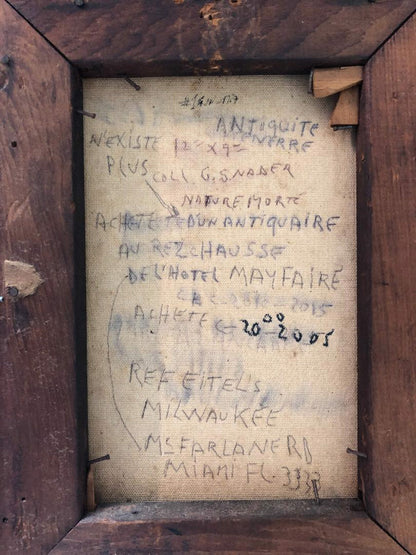 ANTIQUITE
N'EXISTE 12" x 9" VERRE
PLUS COLL G. SNADER
NATURE MORTE
ACHETE D'UN ANTIQUAIRE
AU REZ CHAUSSE
DE L'HOTEL MAYFAIRE
ACHETE 20 00 2005
REF EITEL'S
MILWAUKEE
McFARLANE RD
MIAMI FL. 333